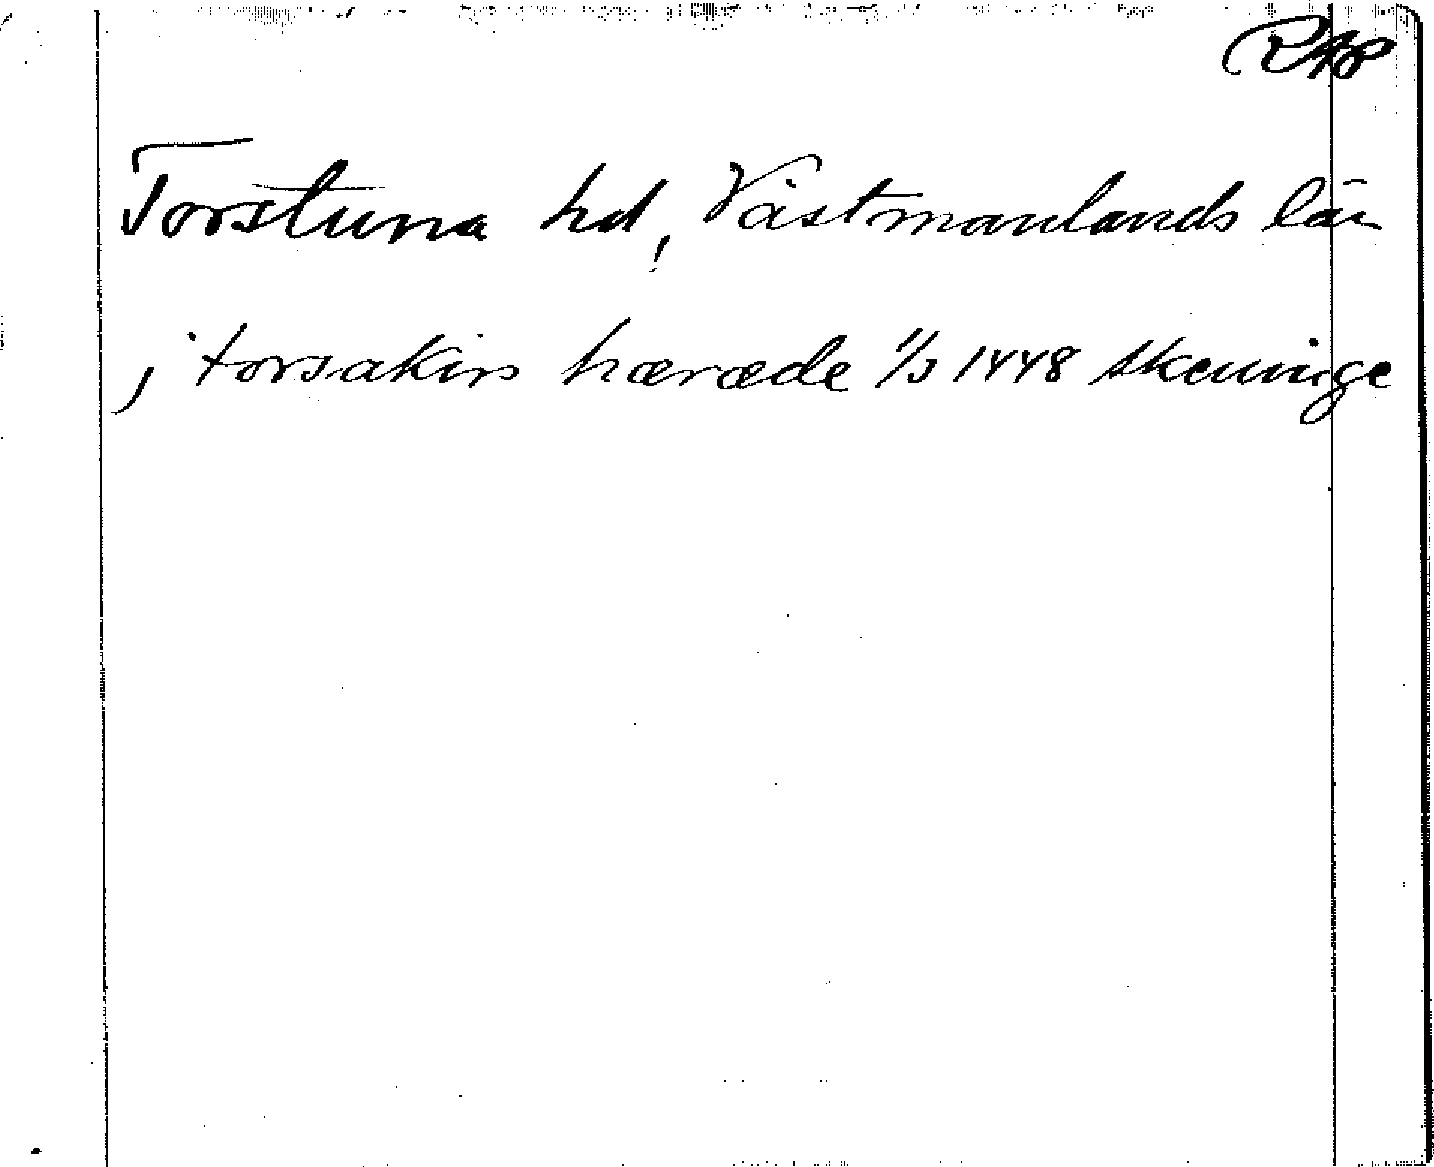 RAP
Torstuna hd, Västmanlands län
j torsakirs hæræde 1/3 1448 Skeninge